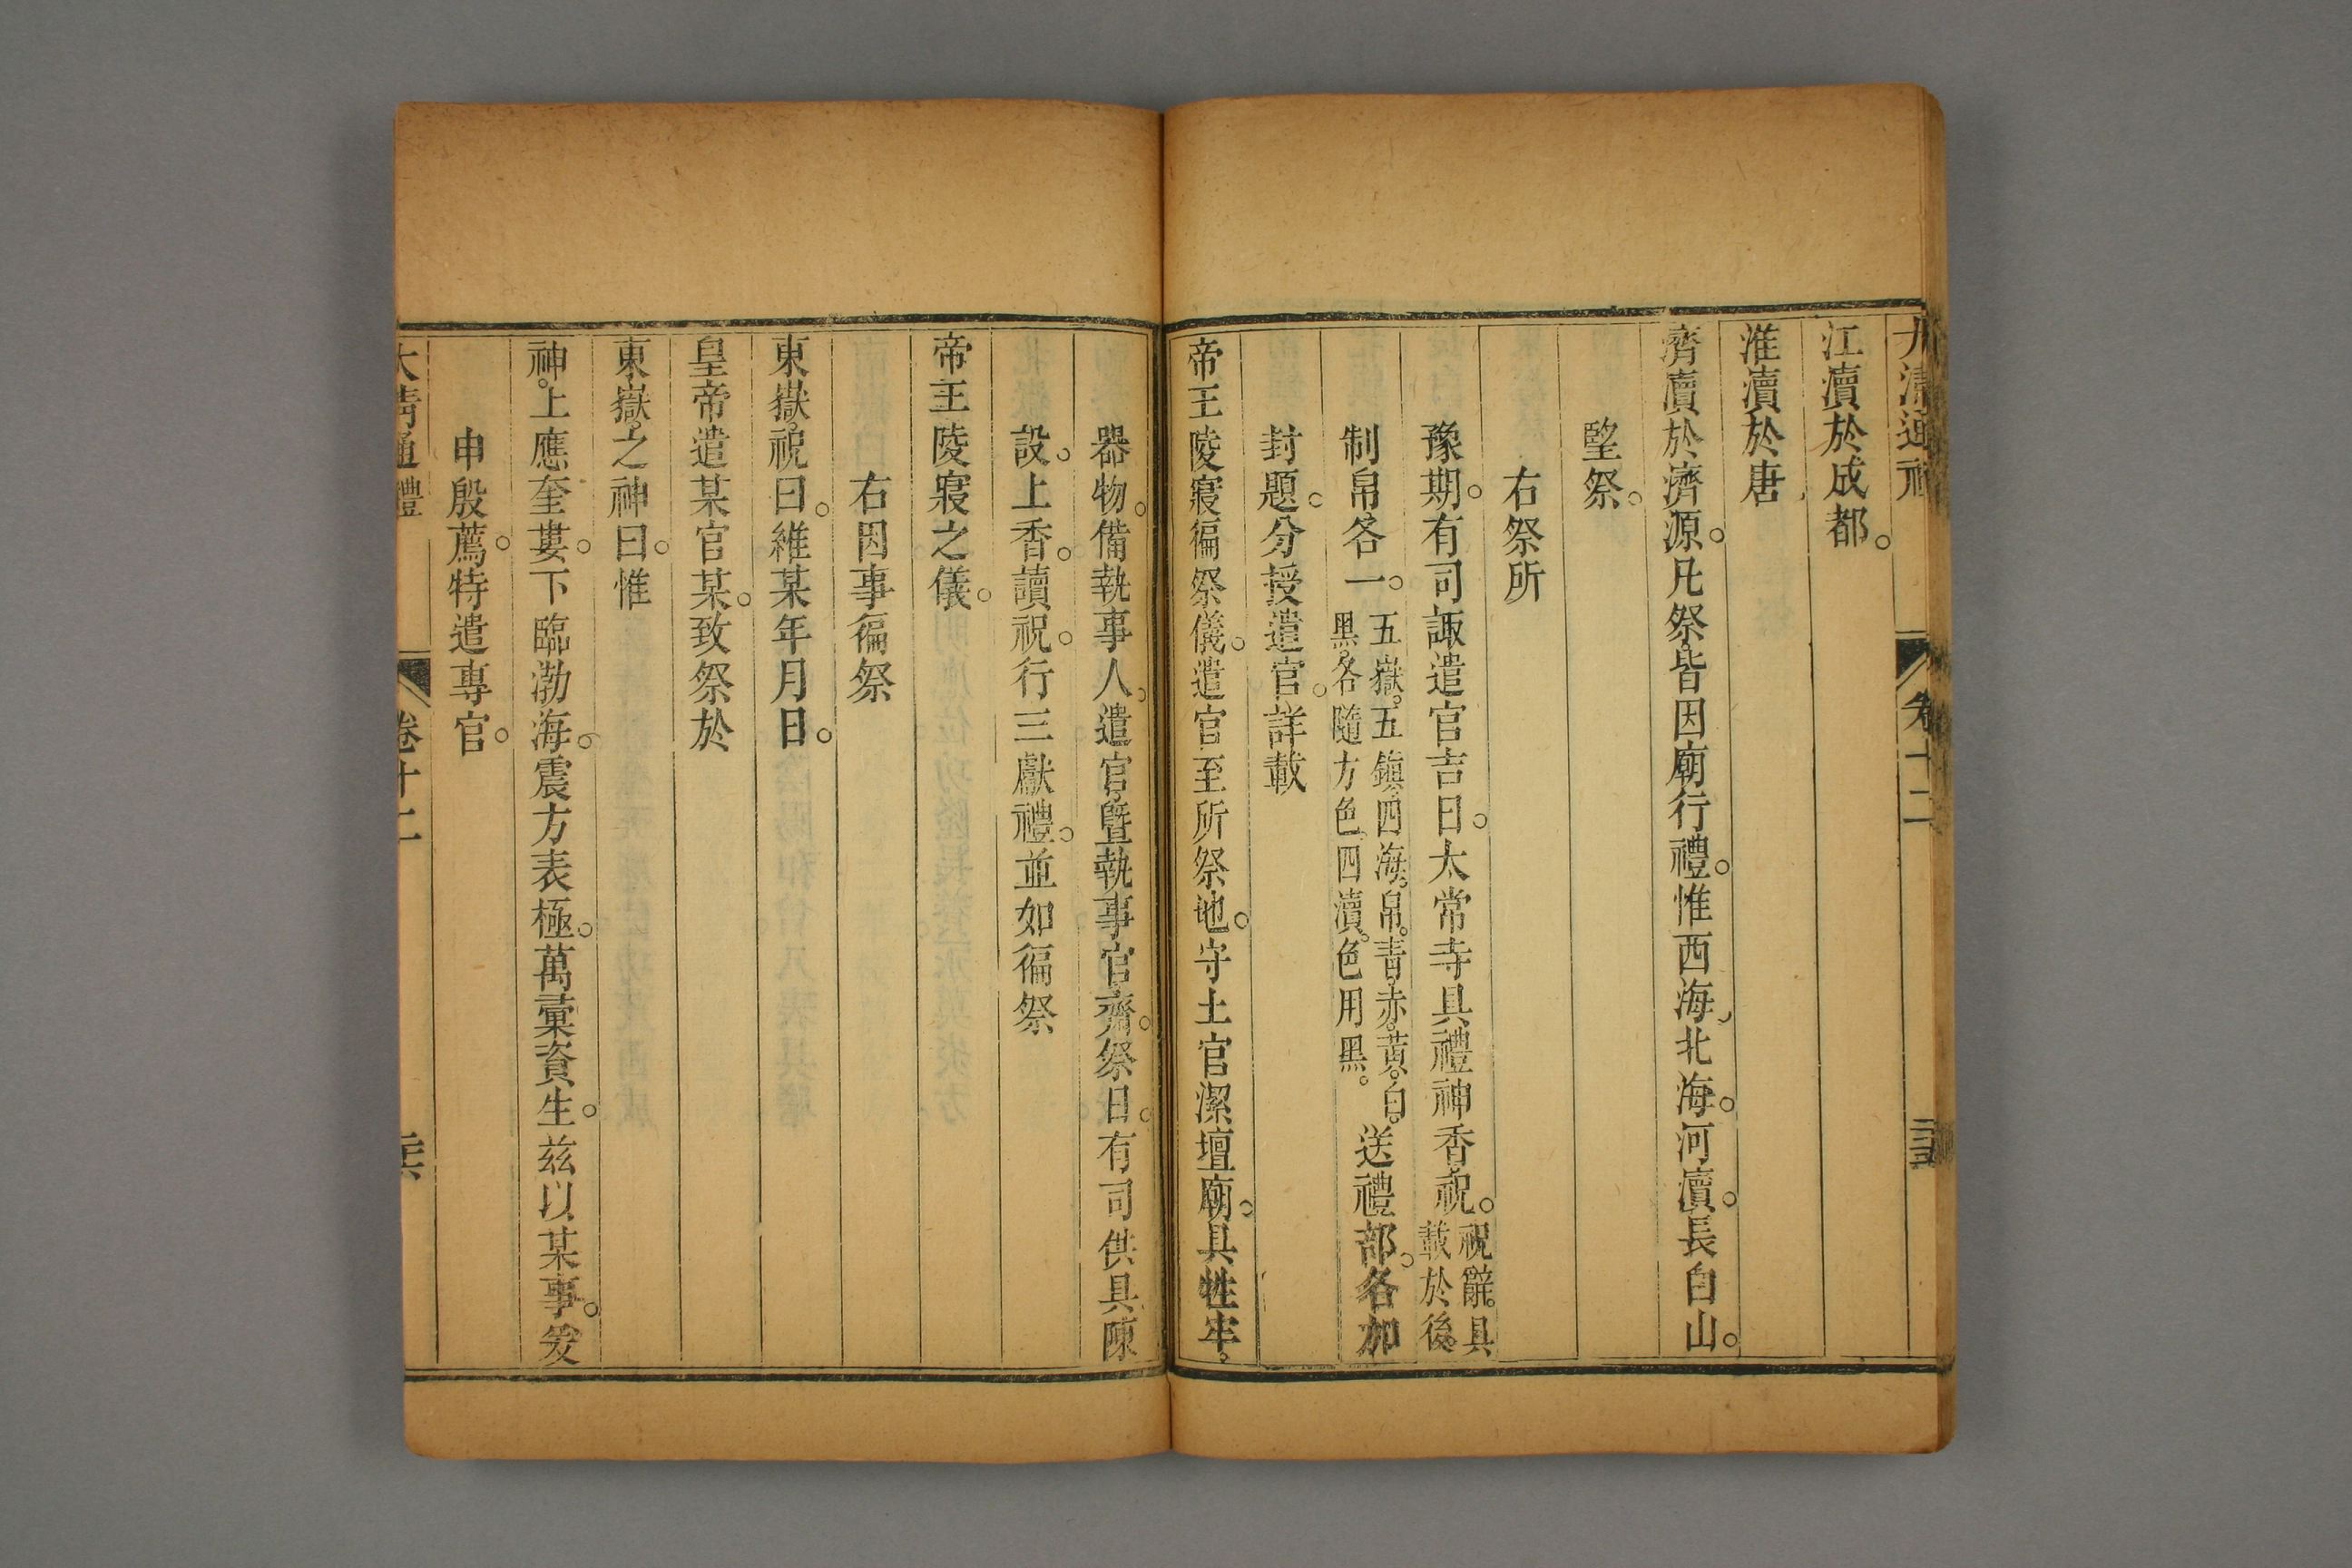 大清通禮 卷十二
江瀆於成都。
淮瀆於唐、
濟瀆於濟源。凡祭。皆因廟行禮。惟西海、北海。河瀆。長白山。
望祭。
右祭所
豫期。有司諏遣官吉日。太常寺具禮神香。祝。祝辭。具載於後。
制帛各一。五嶽。五鎮。四海。帛。青。赤。黃。白。黑。各隨方色。四瀆。色用黑。送禮部。各加
封題。分授遣官。詳載
帝王陵寢徧祭儀。遣官至所祭地。守土官潔壇廟。具牲牢。
器物。備執事人。遣官。曁執事官。齋。祭日。有司供具陳
設。上香。讀祝。行三獻禮。並如徧祭
帝王陵寢之儀。
右因事徧祭
東嶽。祝曰。維某年月日。
皇帝遣某官某。致祭於
東嶽。之神曰。惟
神。上應奎婁。下臨渤海。震方表極。萬彙資生。茲以某事。爰
申殷薦。特遣專官。
大清通禮 卷十二